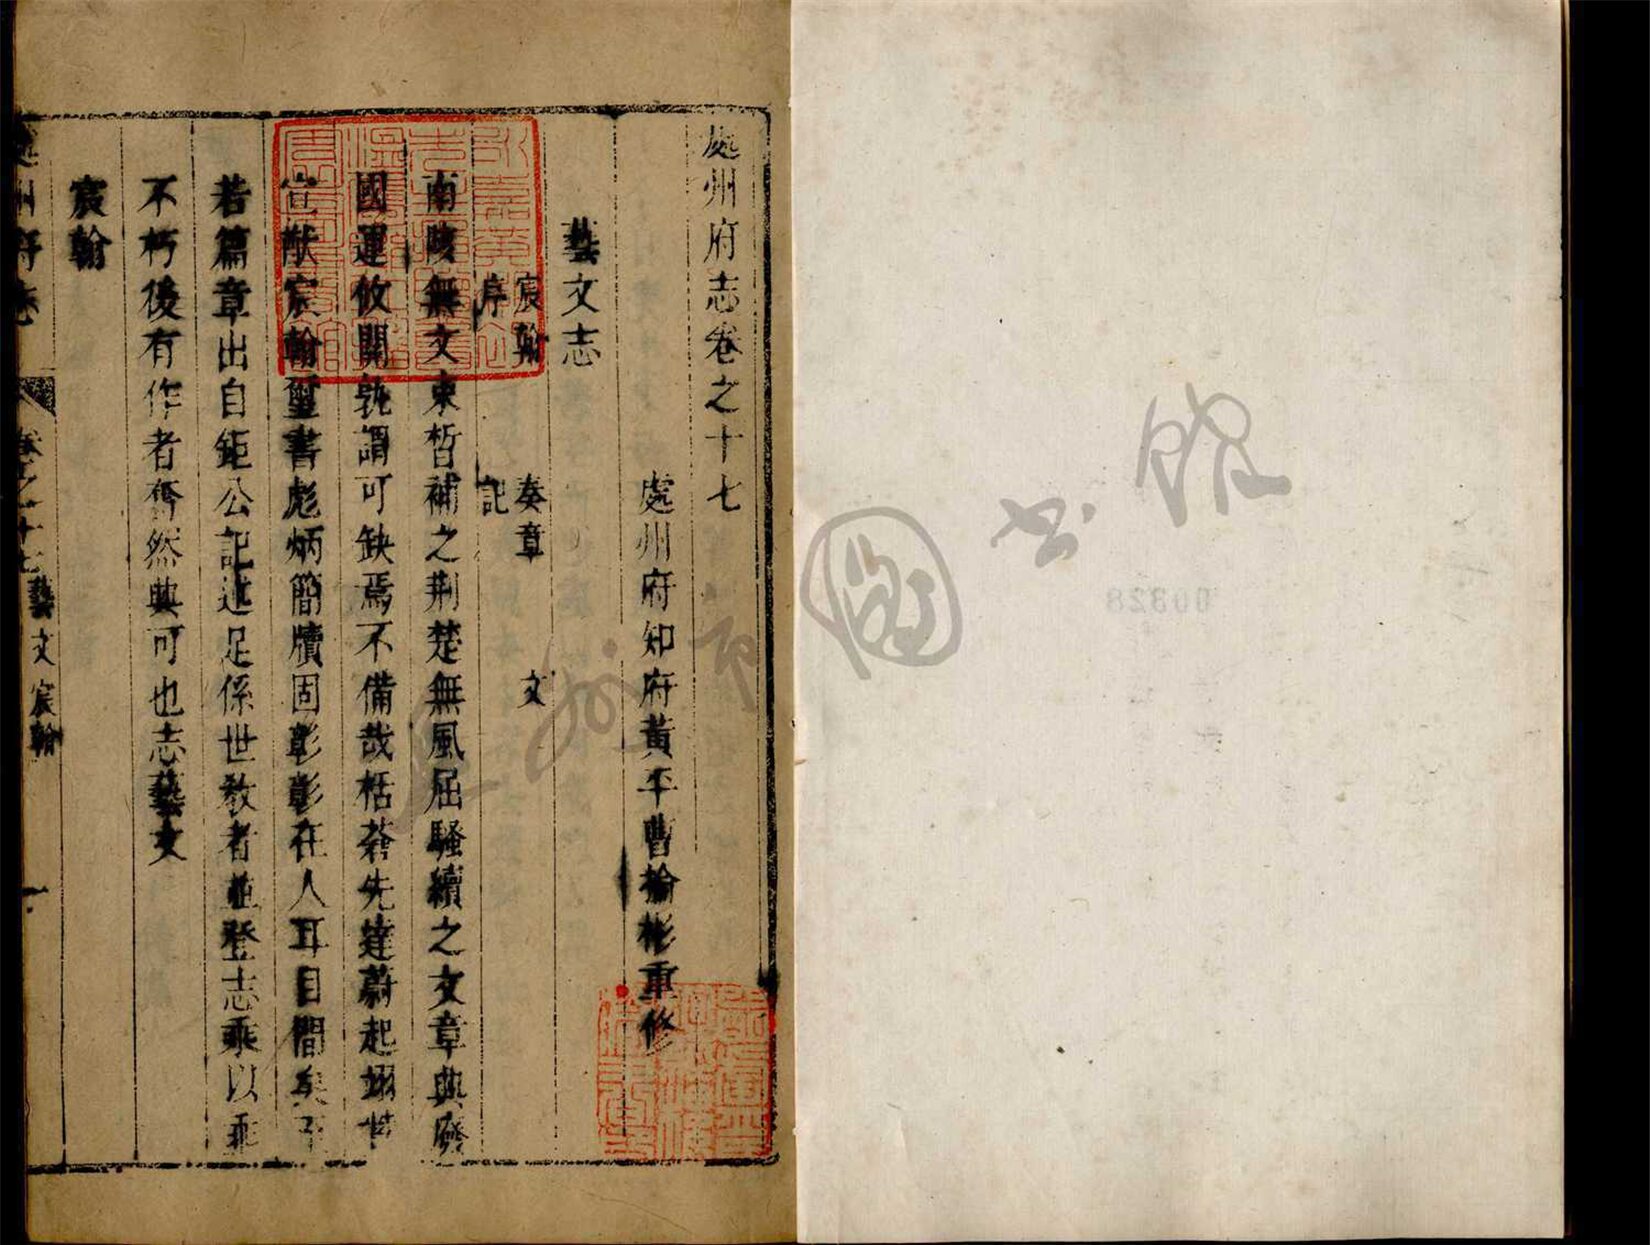 處州府志卷之十七
處州府知府黃平曹掄彬重修
藝文志
宸翰 奏章 文
序 記
南陔無文束晳補之荆楚無風屈騷續之文章與廢
國運攸關孰謂可缺焉不備哉栝蒼先達蔚起翊世
宣猷宸翰璽書彪炳簡牘固彰彰在人耳目間矣
若篇章出自鉅公記述足係世教者並登志乘以垂
不朽後有作者奮然興可也志藝文
宸翰
處州府志 卷之十七 藝文 宸翰 一
圖書館
00328